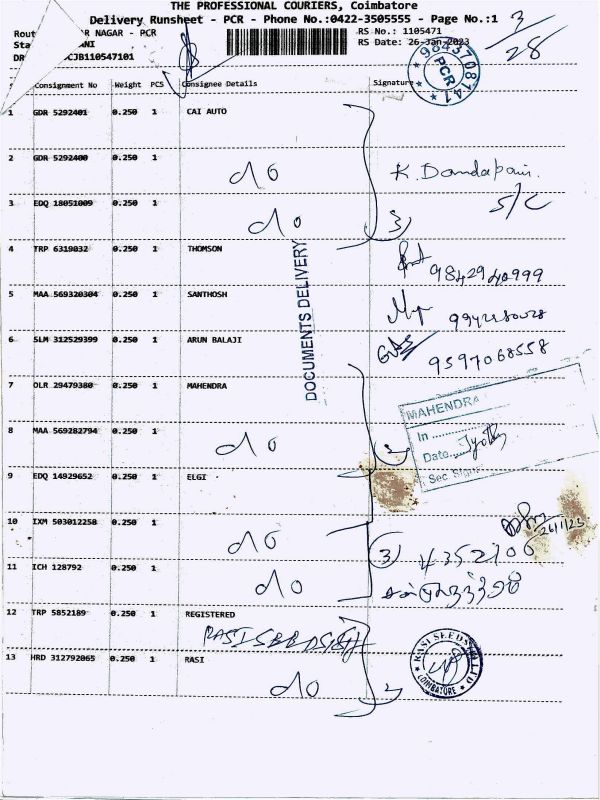 THE PROFESSIONAL COURIERS, Coimbatore
Delivery Runsheet - PCR - Phone No.:0422-3505555 - Page No.:1
3/28
AR NAGAR - PCR
RS No.: 1105471
RS Date: 26-Jan-2023
CJB110547101
9843708141
PCR
Consignment No Weight PCS Consignee Details Signature
1 GDR 5292401 0.250 1 CAI AUTO
2 GDR 5292400 0.250 1
do
K. Dandapani.
S/C
3 EDQ 18051009 0.250 1
do
3)
4 TRP 6319032 0.250 1 THOMSON
9842940999
DOCUMENTS DELIVERY
5 MAA 569320304 0.250 1 SANTHOSH
6 SLM 312529399 0.250 1 ARUN BALAJI
9597068558
7 OLR 29479380 0.250 1 MAHENDRA
MAHENDRA
In
Date
Sec. Sign
8 MAA 569282794 0.250 1
do
2
9 EDQ 14929652 0.250 1 ELGI
10 IXM 503012258 0.250 1
do
26/1/23
3) 4352106
11 ICH 128792 0.250 1
do
12 TRP 5852189 0.250 1 REGISTERED
RASI SEEDS
13 HRD 312792065 0.250 1 RASI
do
2
RASI SEEDS (P) LTD
COIMBATORE